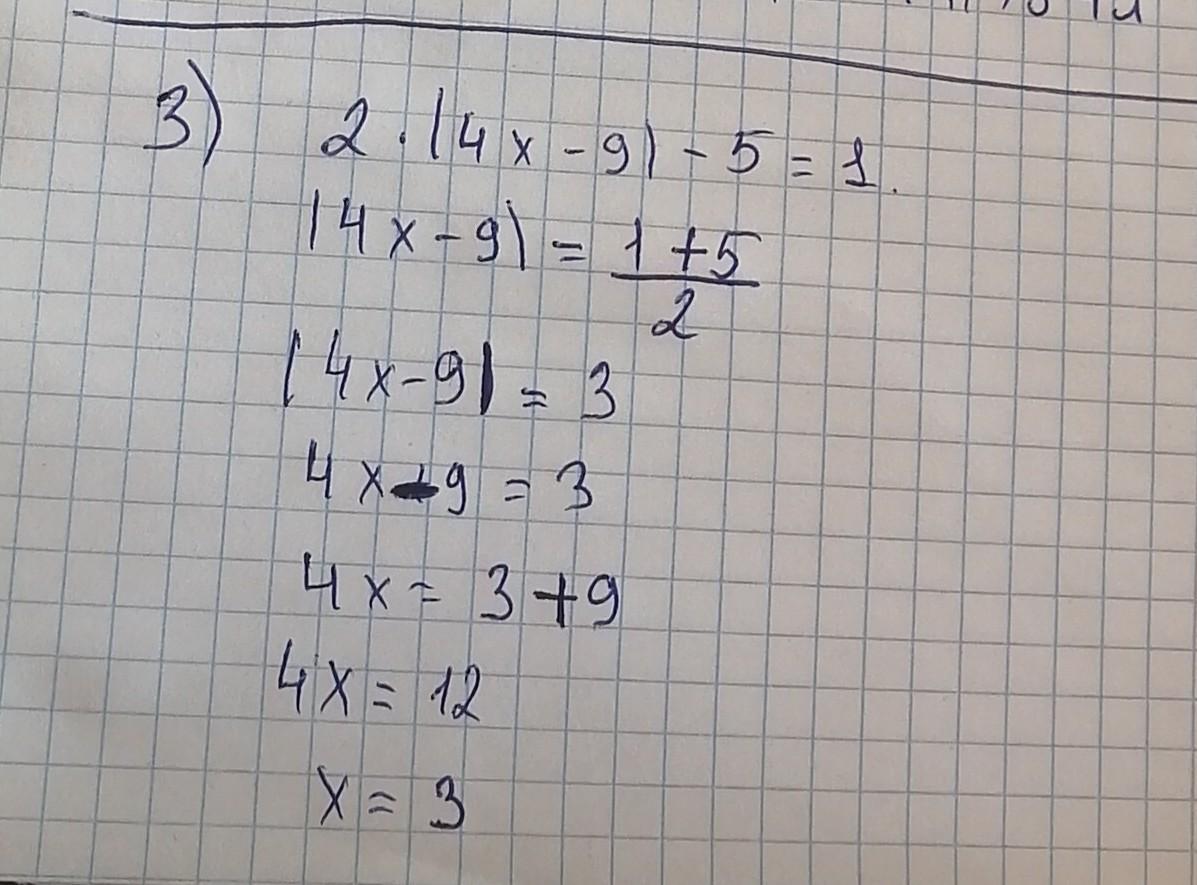 3) 2 · |4x - 9| - 5 = 1.
|4x - 9| = \frac{1 + 5}{2}
|4x - 9| = 3
4x - 9 = 3
4x = 3 + 9
4x = 12
x = 3